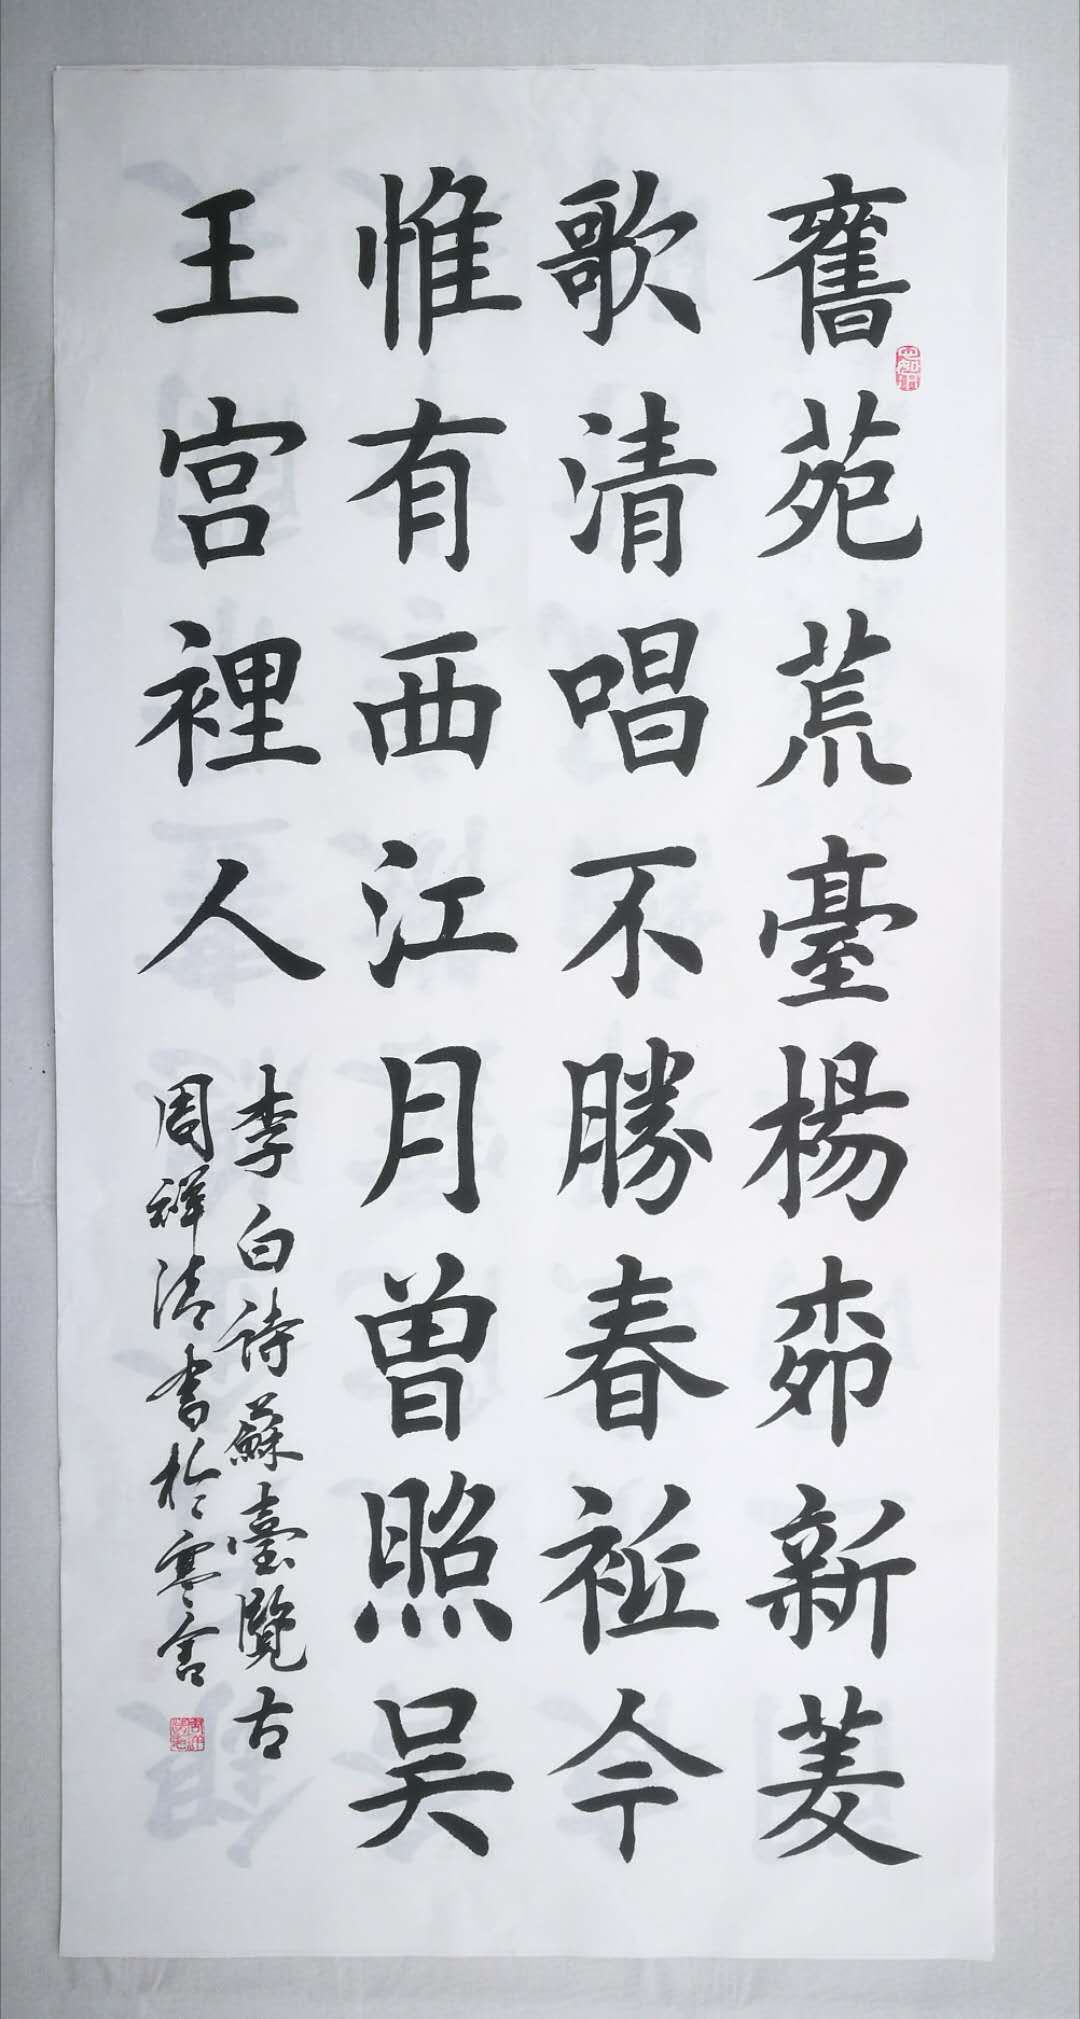 舊苑荒臺楊柳新菱
歌清唱不勝春衹今
惟有西江月曾照吴
王宫裡人
李白詩蘇臺覽古
周祥清书於寒舍